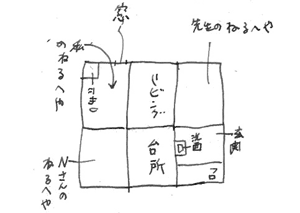 窓
先生のねるへや
私
のねるへや
リビング
台所
玄関
Nさんの
ねるへや